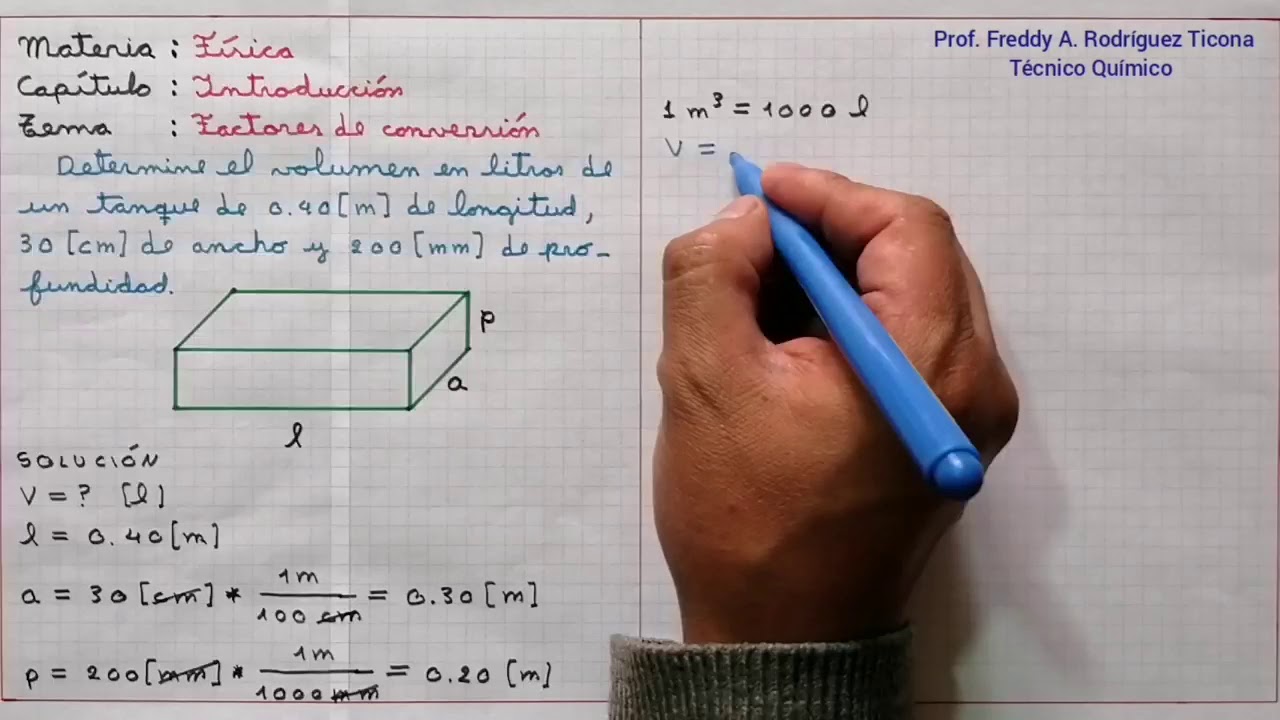 Materia : Física
Capítulo : Introducción
Tema : Factores de conversión
Determine el volumen en litros de
un tanque de 0.40[m] de longitud,
30 [cm] de ancho y 200 [mm] de pro-
fundidad.
p
a
l
SOLUCIÓN
V = ? [l]
l = 0.40[m]
a = 30 [cm] * 1m / 100 cm = 0.30 [m]
p = 200 [mm] * 1m / 1000 mm = 0.20 [m]
Prof. Freddy A. Rodríguez Ticona
Técnico Químico
1 m³ = 1000 l
V =